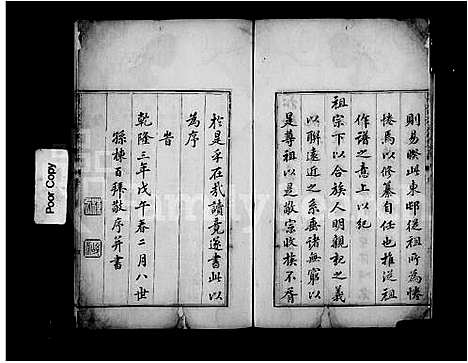 則易睽此東邨從祖所為惓
惓焉以修纂自任也推從祖
作譜之意上以紀
祖宗下以合族人明親親之義
以聯遠近之系垂諸無窮以
是尊祖以是敬宗收族不厝
於是乎在哉讀竟遂書此以
為序
旹
乾隆三年戊午春二月八世
孫棟百拜敬序并書
Poor Copy